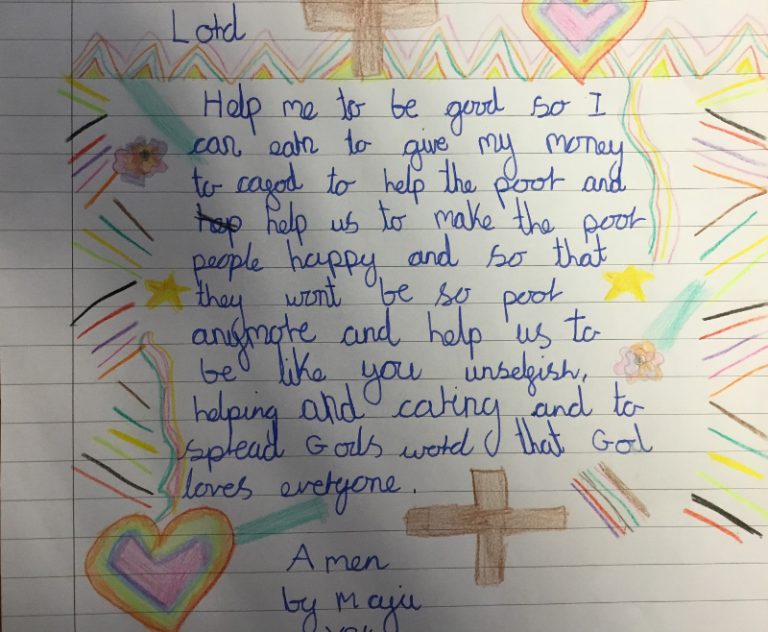 Lord
Help me to be good so I
can earn to give my money
to cagod to help the poor and
help us to make the poor
people happy and so that
they wont be so poor
anymore and help us to
be like you unselgish,
helping and caring and to
spread Gods word that God
loves everyone.
Amen
by Maju